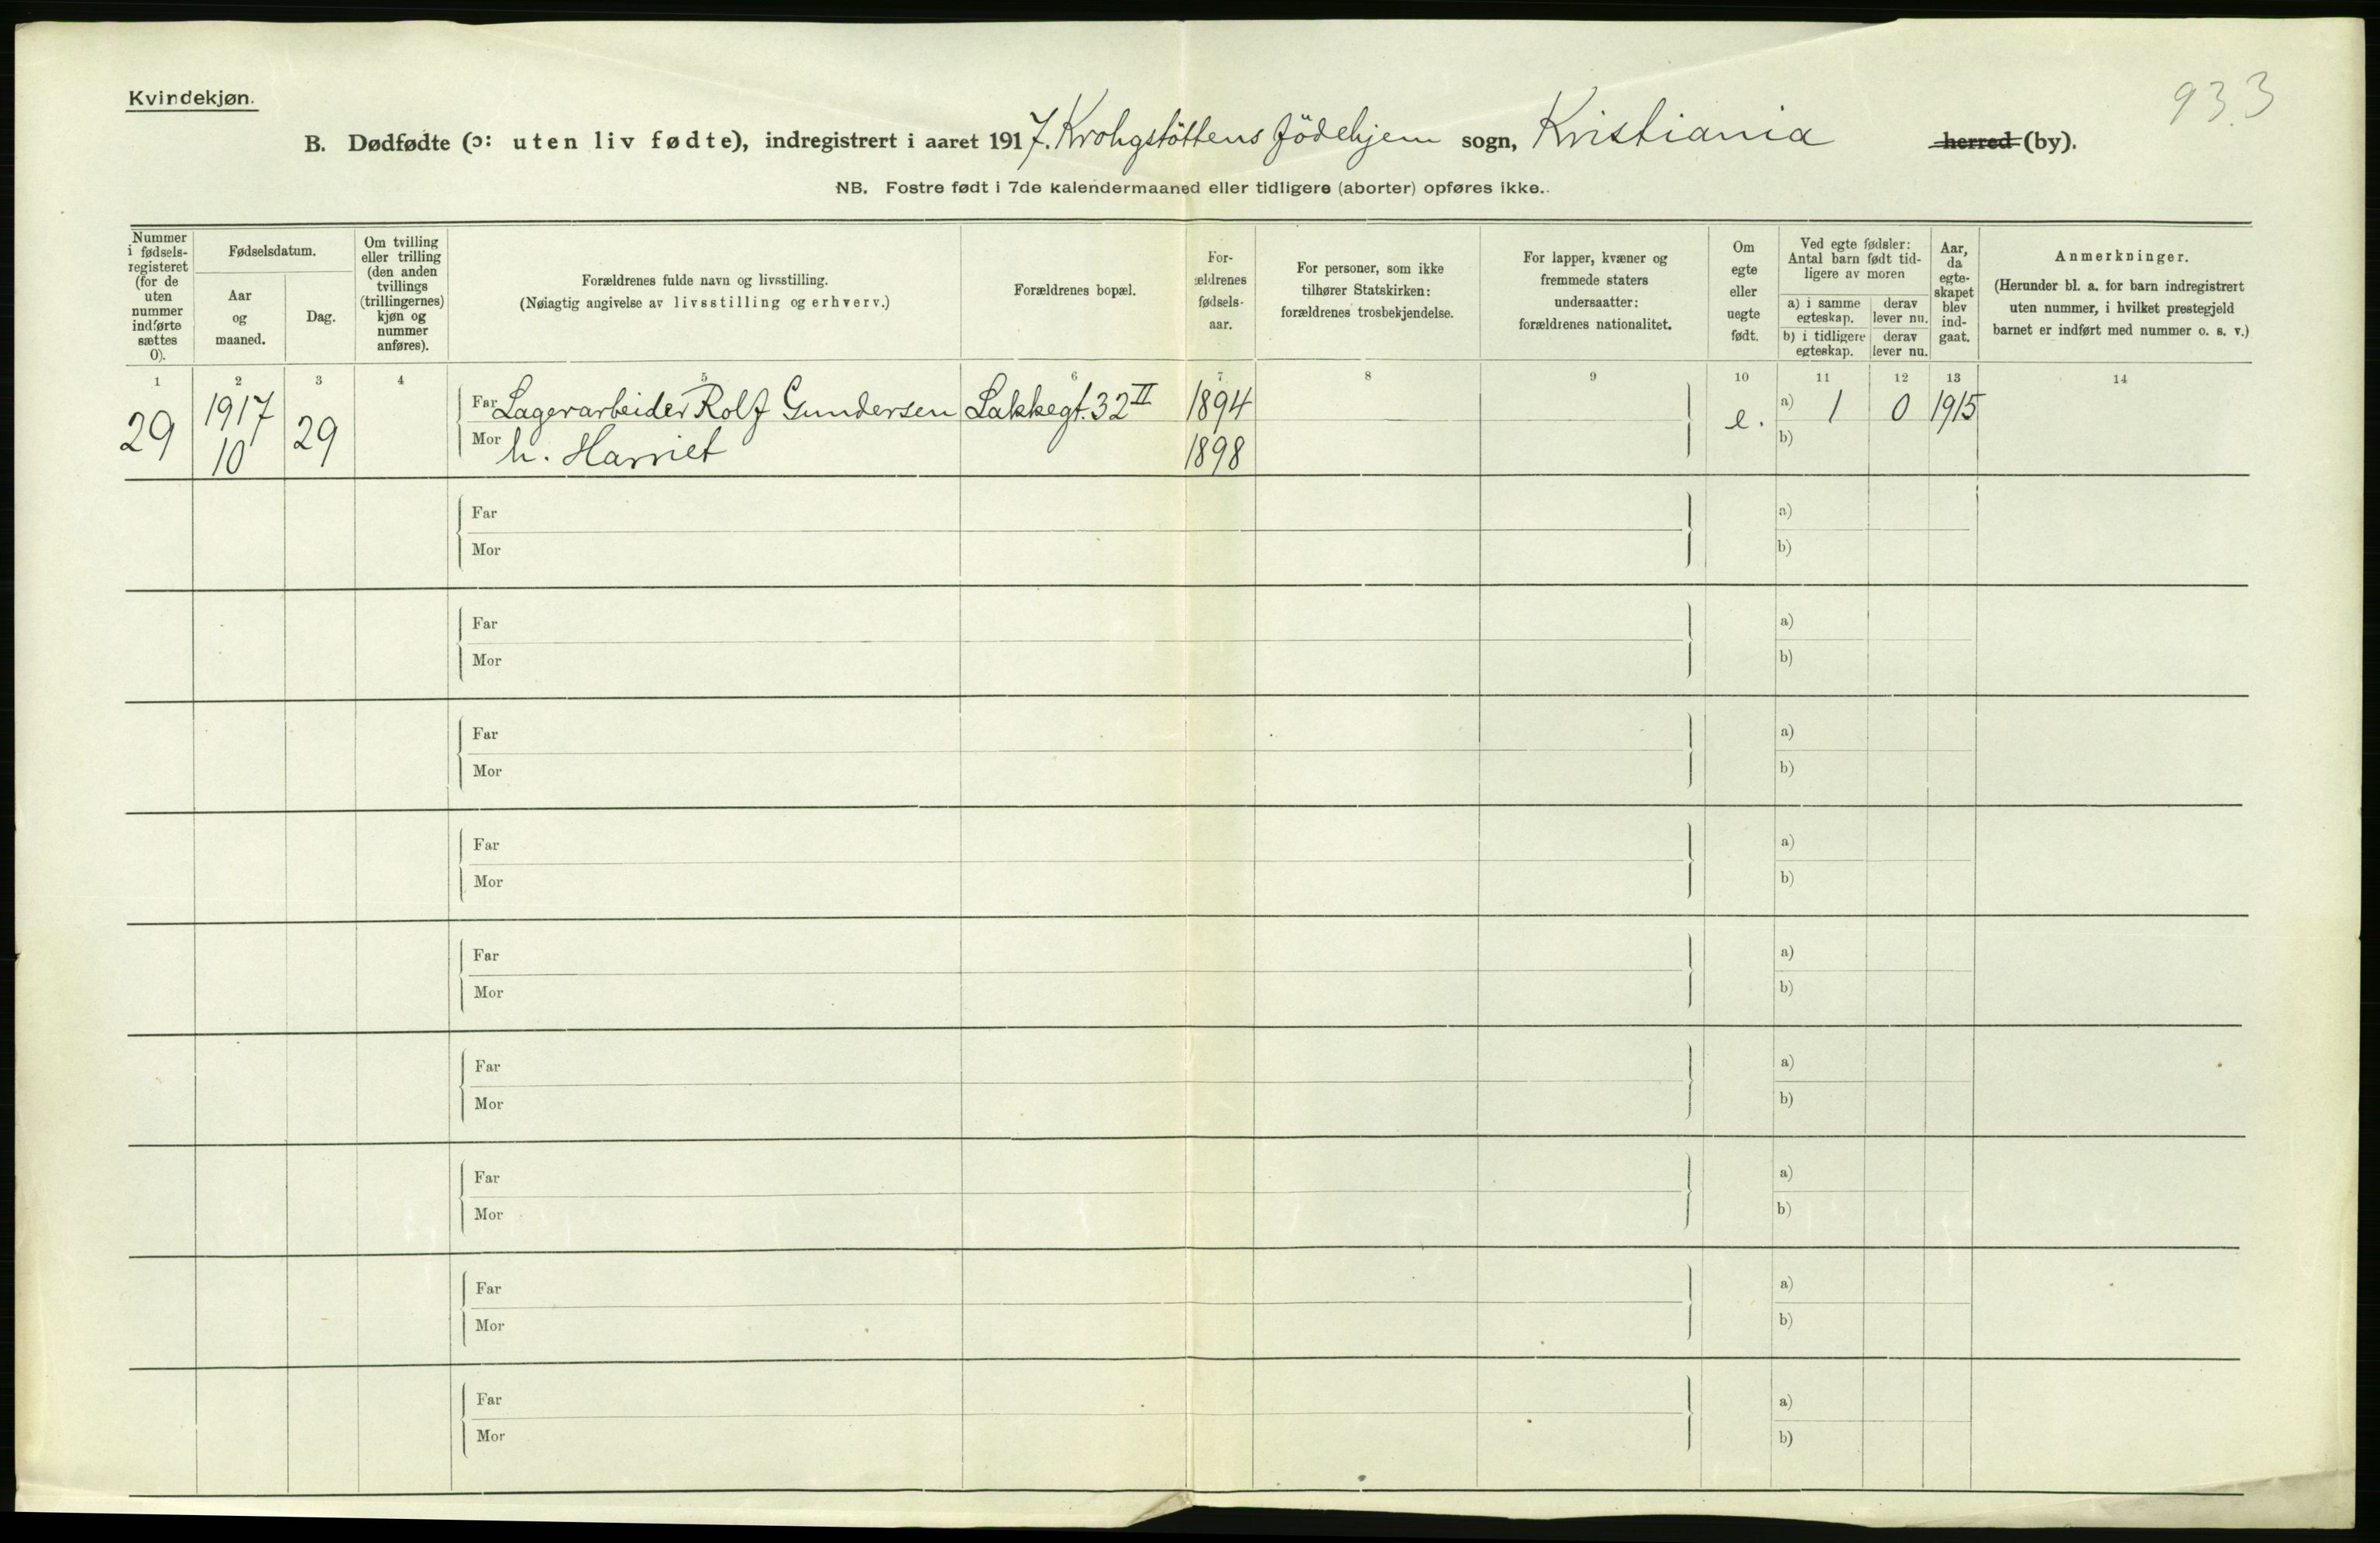 Kvindekjøn.
933
B. Dødfødte (ɔ: uten liv fødte), indregistrert i aaret 1917. Krohgstöttens födehjem sogn, Kristiania herred (by).
NB. Fostre født i 7de kalendermaaned eller tidligere (aborter) opføres ikke.
Nummer
i fødsels-
registeret
(for de
uten
nummer
indførte
sættes
0).
Fødselsdatum.
Aar
og
maaned.
Dag.
Om tvilling
eller trilling
(den anden
tvillings
(trillingernes)
kjøn og
nummer
anføres).
Forældrenes fulde navn og livsstilling.
(Nøiagtig angivelse av livsstilling og erhverv.)
Forældrenes bopæl.
For-
ældrenes
fødsels-
aar.
For personer, som ikke
tilhører Statskirken:
forældrenes trosbekjendelse.
For lapper, kvæner og
fremmede staters
undersaatter:
forældrenes nationalitet.
Om
egte
eller
uegte
født.
Ved egte fødsler:
Antal barn født tid-
ligere av moren
a) i samme
egteskap.
derav
lever nu.
b) i tidligere
egteskap.
derav
lever nu.
Aar,
da
egte-
skapet
blev
ind-
gaat.
Anmerkninger.
(Herunder bl. a. for barn indregistrert
uten nummer, i hvilket prestegjeld
barnet er indført med nummer o. s. v.)
1 2 3 4 5 6 7 8 9 10 11 12 13 14
29 1917 10 29
Far Lagerarbeider Rolf Gundersen Lakkegt. 32 II 1894 e. a) 1 0 1915
Mor h. Harriet 1898 b)
Far a)
Mor b)
Far a)
Mor b)
Far a)
Mor b)
Far a)
Mor b)
Far a)
Mor b)
Far a)
Mor b)
Far a)
Mor b)
Far a)
Mor b)
Far a)
Mor b)